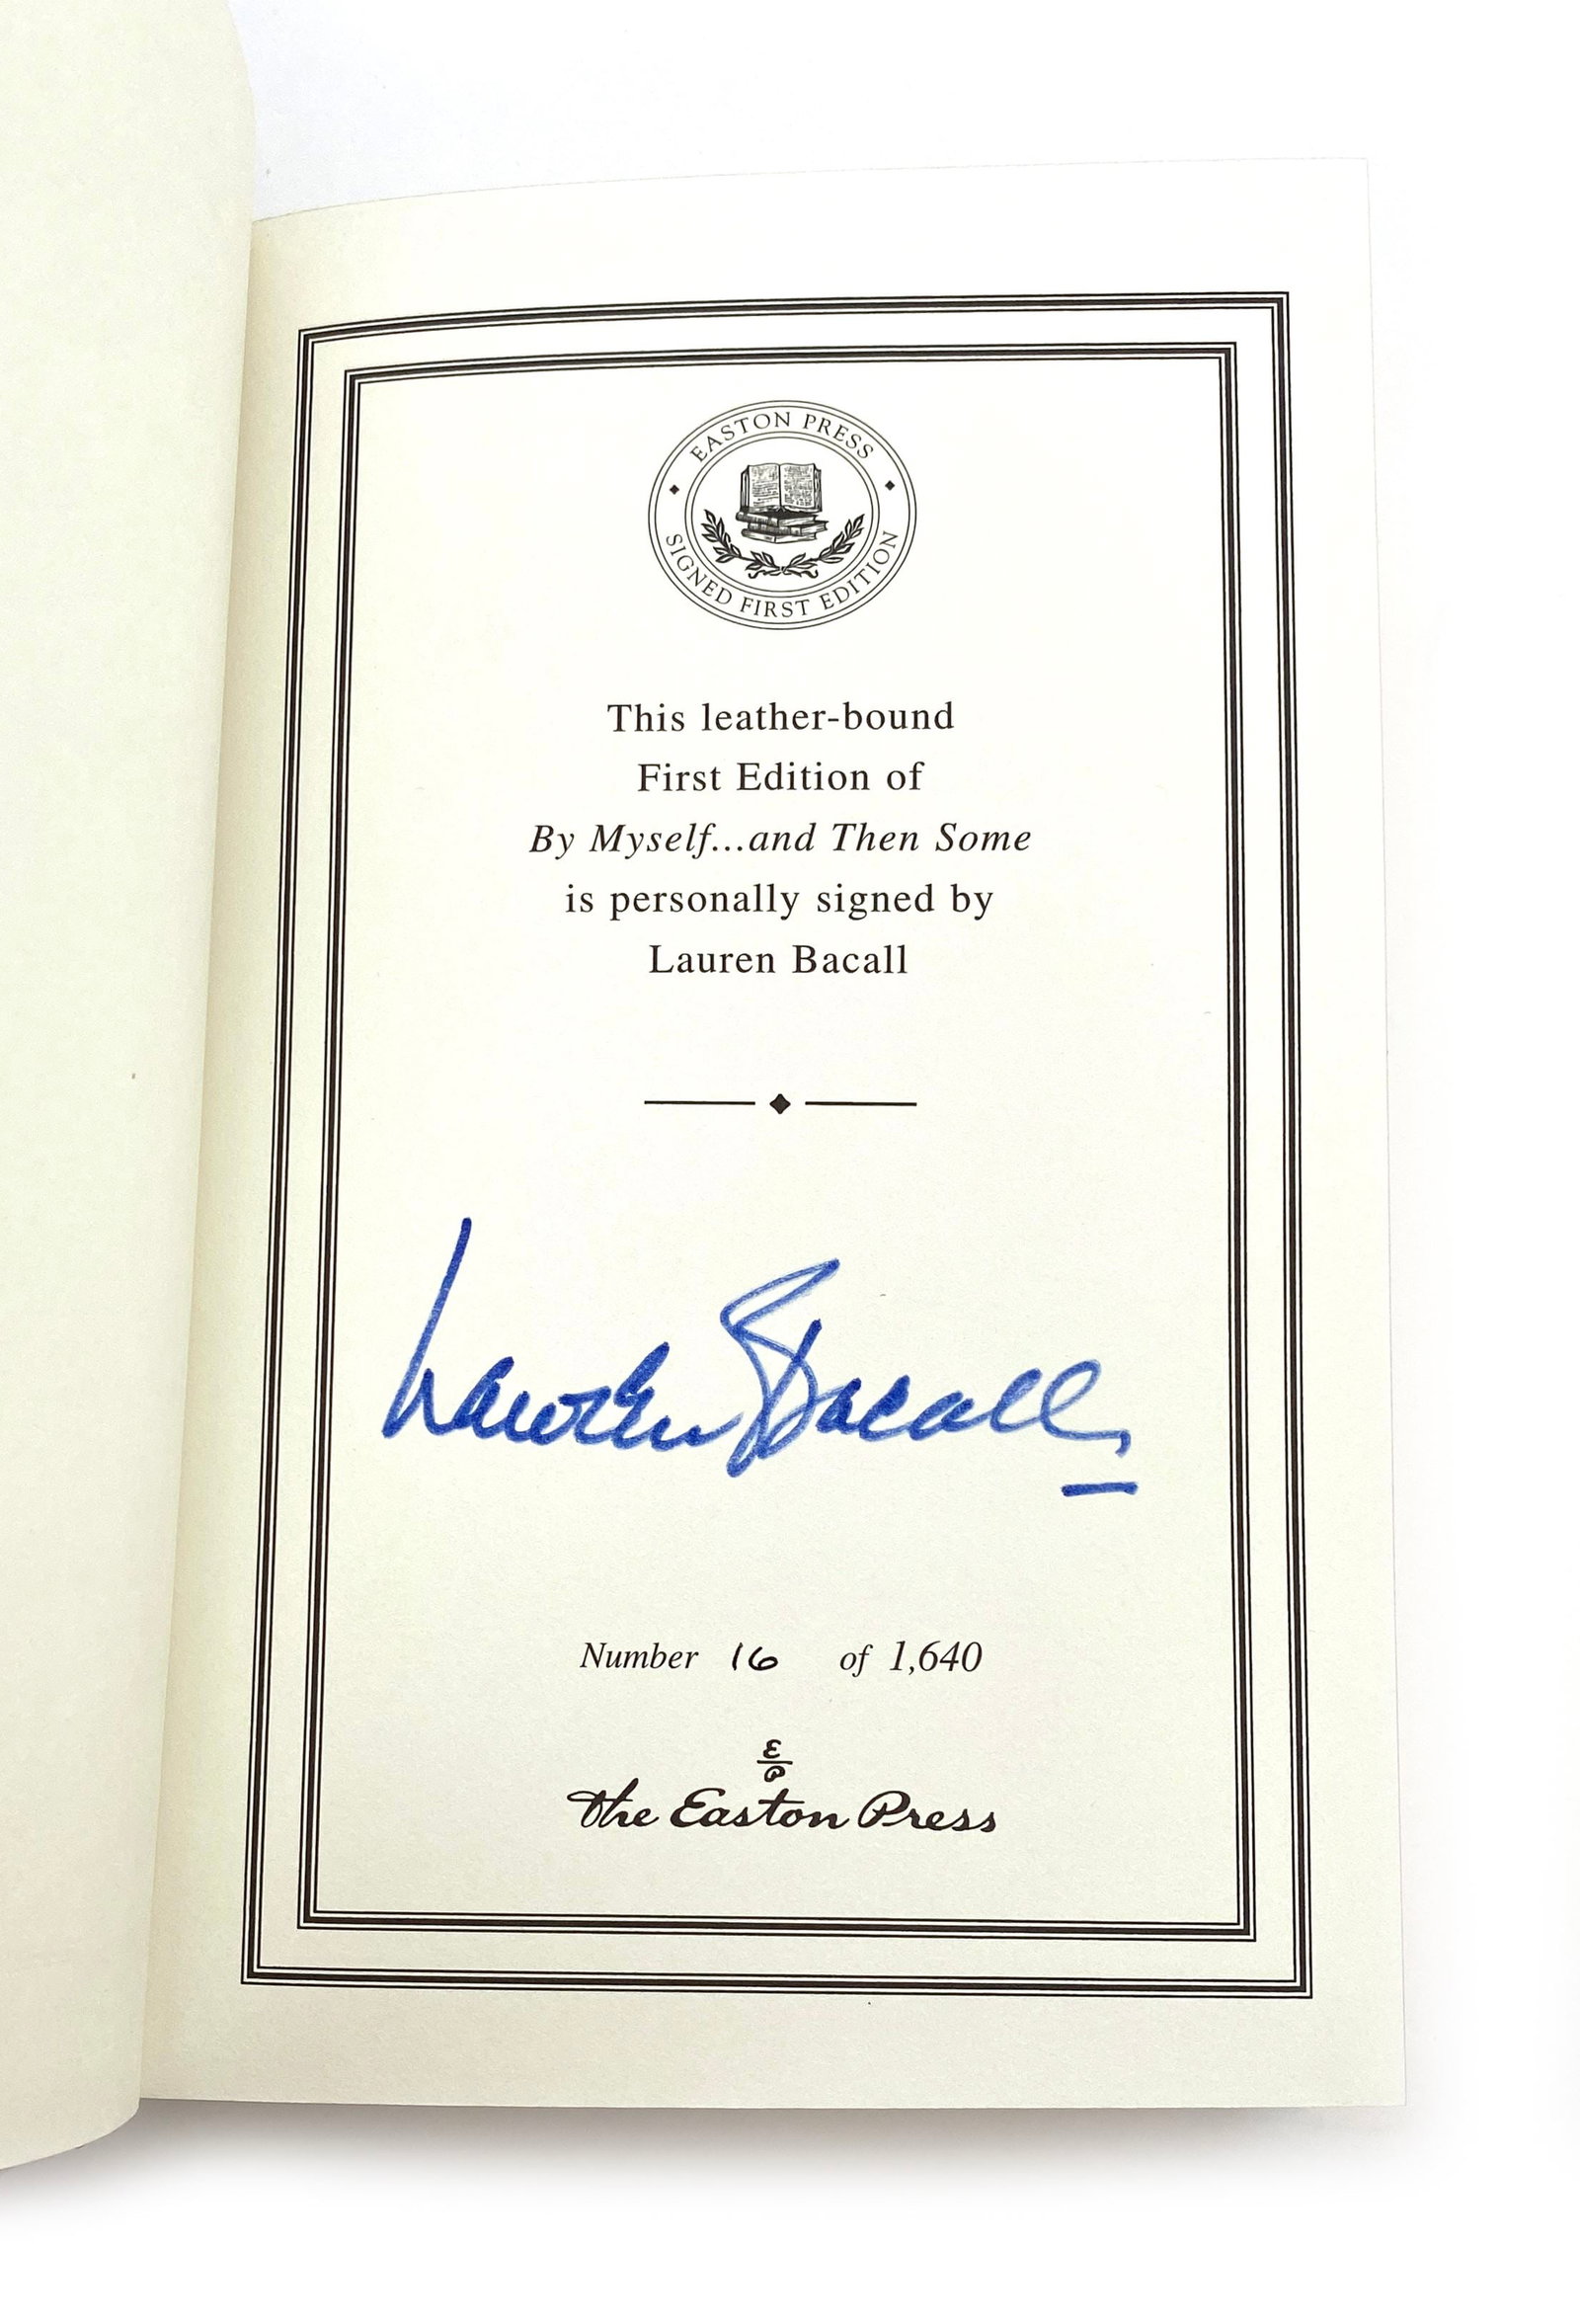 EASTON PRESS
SIGNED FIRST EDITION
This leather-bound
First Edition of
By Myself...and Then Some
is personally signed by
Lauren Bacall
Lauren Bacall
Number 16 of 1,640
E
P
The Easton Press